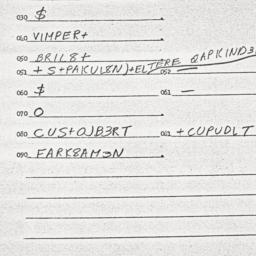 030 $
040 VIMPER+
050 BRIL8+
051 + S+PAKUL8NJ+ELTERE QAPKIND3 052 —
060 $ 061 —
070 O
080 CUS+OJB3RT 062 +CUPUDLT
090 FARK8AM3N